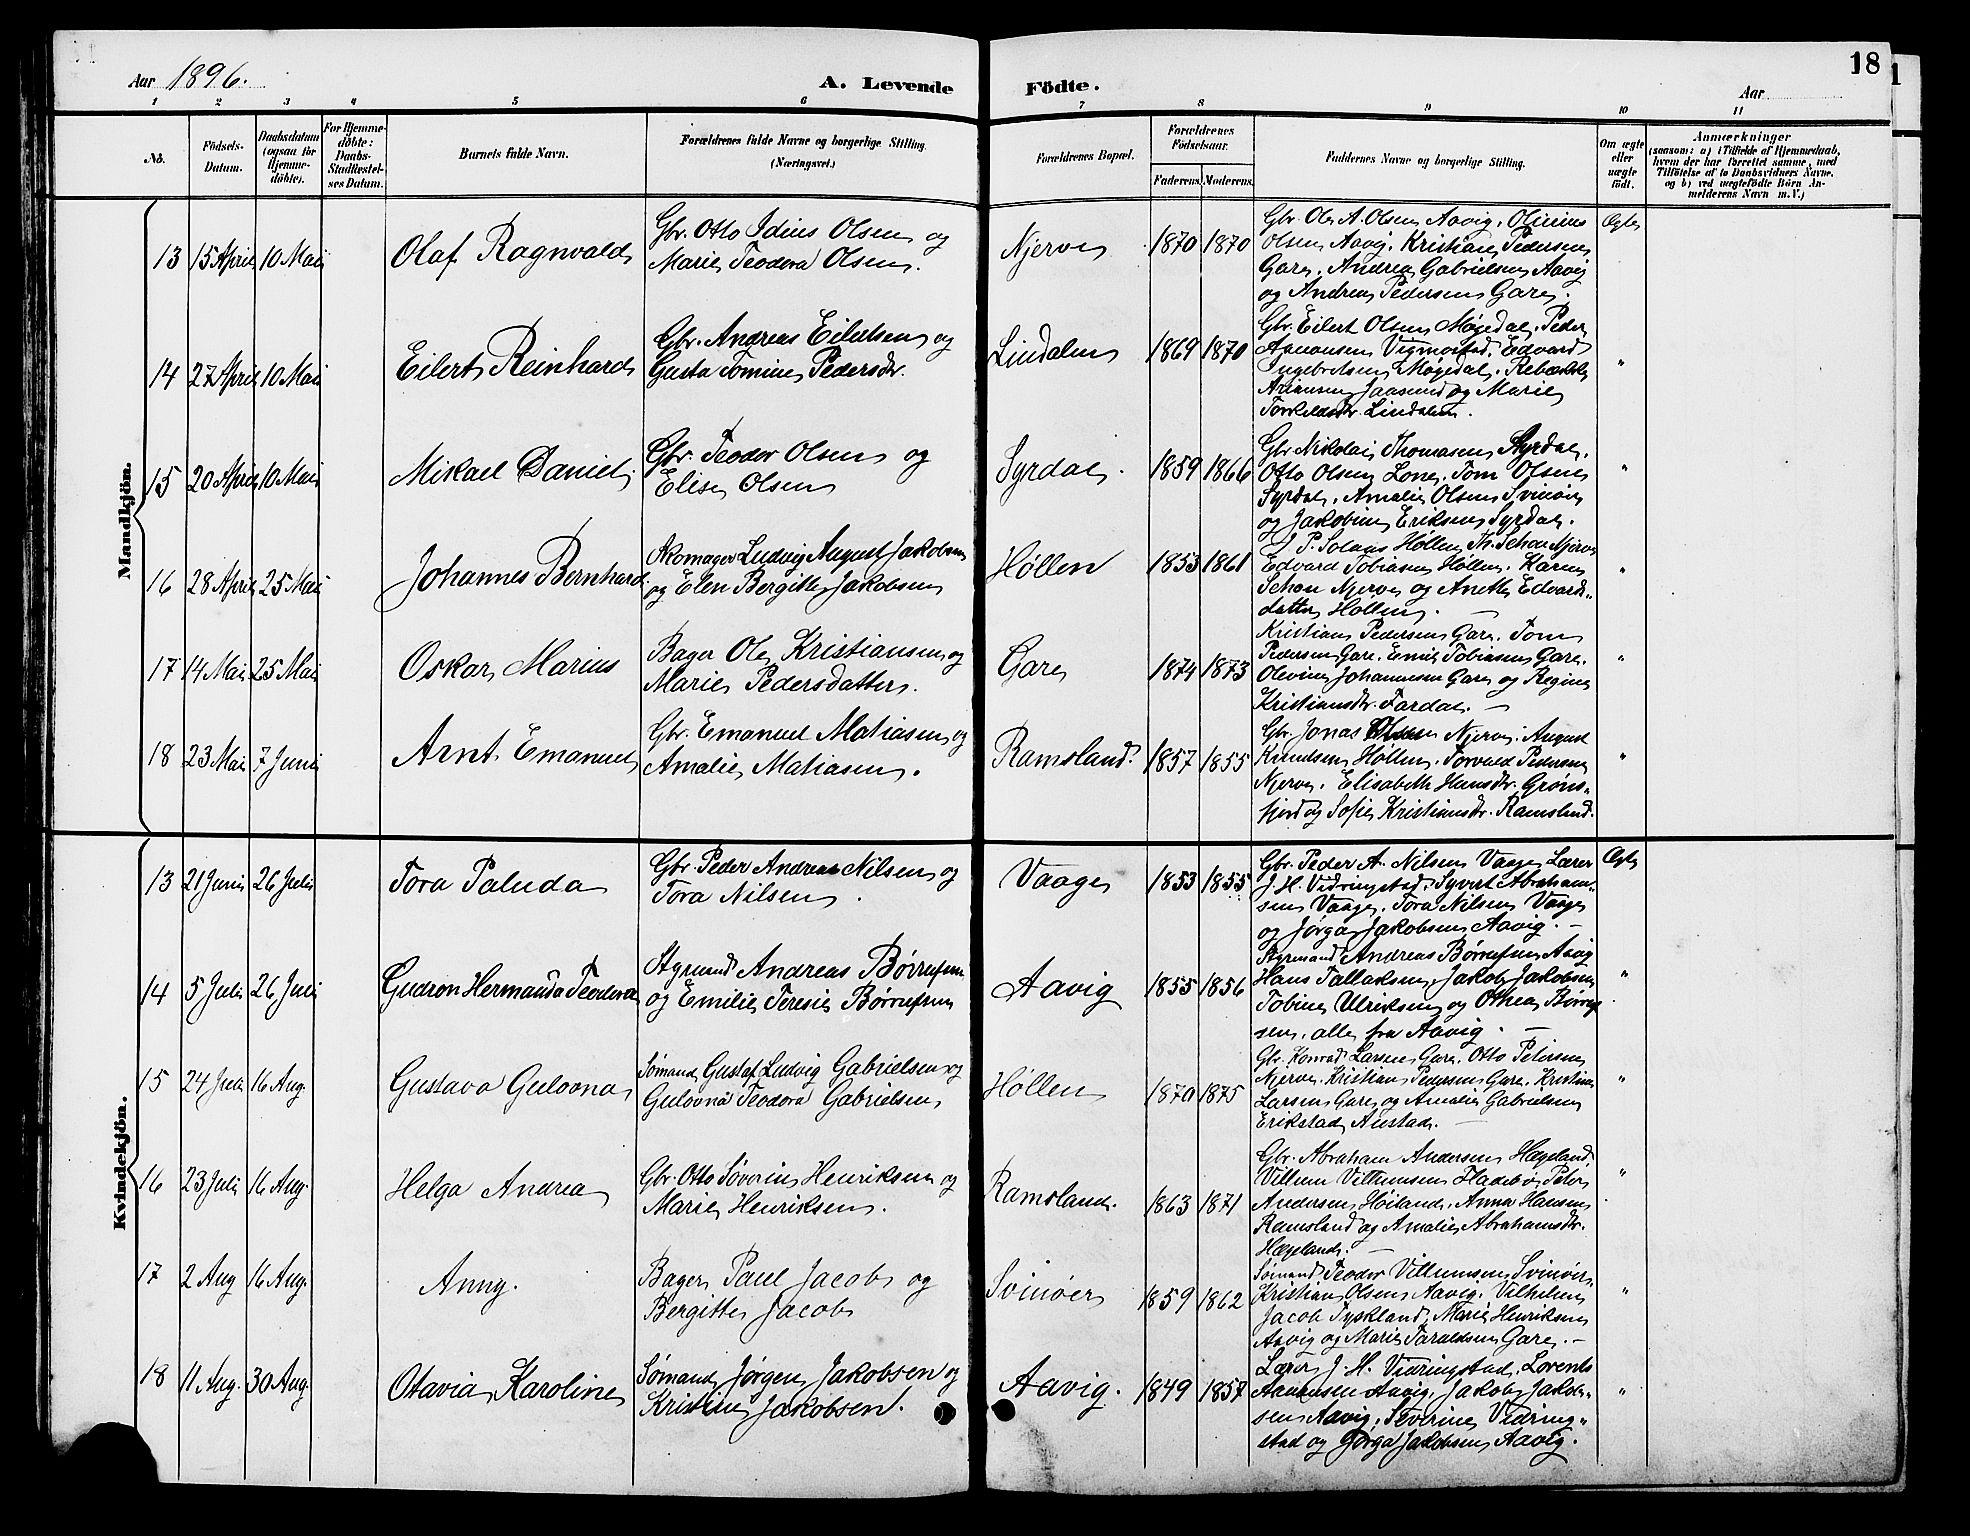 18
Aar 1896.
A. Levende Födte.
Aar
1 2 3 4 5 6 7 8 9 10 11
No.
Födsels-Datum.
Daabsdatum (ogsaa for Hjemme-döbte).
For Hjemme-döbte: Daabs-Stadfæstel-ses Datum.
Barnets fulde Navn.
Forældrenes fulde Navne og borgerlige Stilling. (Næringsvei.)
Forældrenes Bopæl.
Forældrenes Födselsaar.
Faderens. Moderens.
Faddernes Navne og borgerlige Stilling.
Om ægte eller uægte födt.
Anmærkninger
(saasom: a) i Tilfælde af Hjemmedaab,
hvem der har forrettet samme, med
Tilföielse af to Daabsvidners Navne,
og b) ved uægtefödte Börn An-
melderens Navn m.V.)
Mandkjön.
13 15 April 10 Mai Olaf Ragnvald
Gbr. Otto Idius Olsen og
Marie Teodora Olsen.
Njerve 1870 1870
Gbr. Ole A. Olsen Aavig, Olinius
Olsen Aavig, Kristian Pedersen
Gare, Andrea Gabrielsen Aavig
og Andrea Pedersen Gare.
Ægte
14 27 April 10 Mai Eilert Reinhard
Gbr. Andreas Eilertsen og
Gusta Tomine Pedersdr.
Lindalen 1869 1870
Gbr. Eilert Olsen Møgedal, Peder
Aanonsen Vigmostad, Edvard
Ingebretsen Møgedal, Rebekka
Jaasund og Marie
Torkildsdr. Lindalen.
"
15 20 April 10 Mai Mikael Daniel
Gbr. Teodor Olsen og
Elise Olsen
Syrdal. 1859 1866
Gbr. Nikolai Thomasen Syrdal,
Otto Olsen Lone, Tom Olsen
Syrdal, Amalie Olsen Svinøer
og Jakobine Eriksen Syrdal.
"
16 28 April 25 Mai Johannes Bernhard
Skomager Ludvig August Jakobsen
og Elen Bergitte Jakobsen
Høllen 1853 1861
J. P. Solaas Høllen, Th. Schou Njerve
Edvard Tobiasen Høllen, Karen
Schou Njerve og Anethe Edvards-
datter Høllen.
"
17 14 Mai 25 Mai Oskar Marius
Bager Ole Kristiansen og
Marie Pedersdatter.
Gare 1874 1873
Kristian Pedersen Gare, Tom
Pedersen Gare, Emil Tobiasen Gare,
Olevine Johannesen Gare og Regine
Kristiansdr. Fardal.
"
18 23 Mai 7 Juni Arnt Emanuel
Gbr. Emanuel Matiasen og
Amalie Matiasen.
Ramsland. 1857 1855
Gbr. Jonas Olsen Njerve, August
Knudsen Høllen, Torvald Pedersen
Njerve, Elisabeth Hansdr. Grøns-
fjord og Sofie Kristiansdr. Ramsland.
"
Kvindekjön.
13 21 Juni 26 Juli Tora Paluda
Gbr. Peder Andreas Nilsen og
Tora Nilsen.
Vaage 1853 1855
Gbr. Peder A. Nilsen Vaage, Lærer
J. H. Vidringstad, Syvert Abraham-
sen Vaage, Tora Nilsen Vaage
og Jørga Jakobsen Aavig.
Ægte
14 5 Juli 26 Juli Gudron Hermanda Teodora
Styrmand Andreas Børrufsen
og Emilie Teresie Børrufsen
Aavig 1855 1856
Styrmand Andreas Børrufsen Aavig
Hans Tallaksen, Jakob Jakobsen
Tobine Ulriksen og Othea Børruf
sen, alle fra Aavig.
"
15 24 Juli 16 Aug. Gustava Gulovna
Sømand Gustaf Ludvig Gabrielsen og
Gulovna Teodora Gabrielsen
Høllen 1870 1875
Gbr. Konrad Larsen Gare, Otto Petersen
Njerve, Kristian Pedersen Gare, Kristine
Larsen Gare og Amalie Gabrielsen
Erikstad, Austad.
"
16 23 Juli 16 Aug. Helga Andrea
Gbr. Otto Søverin Henriksen og
Marie Henriksen.
Ramsland. 1863 1871
Gbr. Abraham Andersen Hægeland,
Villum Villumsen Peter
Andersen Høiland, Anna Hansen
Ramsland og Amalie Abrahamsdr.
Hægeland.
"
17 2 Aug 16 Aug. Anny.
Bager Paul Jacob og
Bergitte Jacob
Svinøer 1859 1862
Sømand Teodor Villumsen Svinøer,
Kristian Olsen Aavig, Vilhelm
Jacob Tyskland, Marie Henriksen
Aavig og Marie Taraldsen Gare.
"
18 11 Aug. 30 Aug. Otavia Karoline
Sømand Jørgen Jakobsen og
Kristine Jakobsen.
Aavig. 1849 1857
Lærer J. H. Vidringstad, Lorents
Aanensen Aavig, Jakob Jakob-
sen Aavig, Severine Vidring-
stad og Jørga Jakobsen Aavig.
"